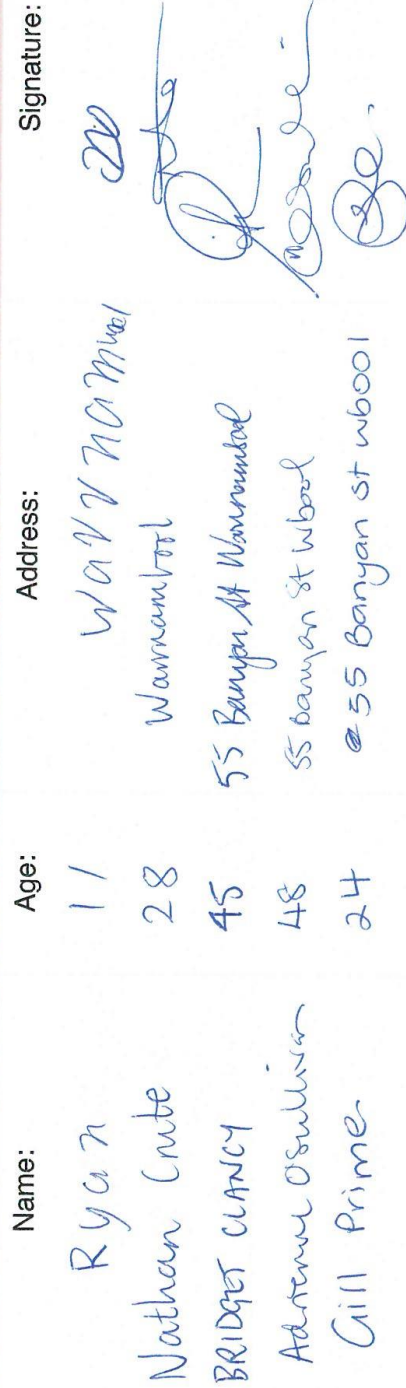 Name: Age: Address: Signature:
Ryan 11 Warrnambool
Nathan 28 Warrnambool
BRIDGET CLANCY 45 55 Banyan St Warrnambool
Adrienne OSullivan 48 55 Banyan St Wbool
Gill Prime 24 55 Banyan St Wbool